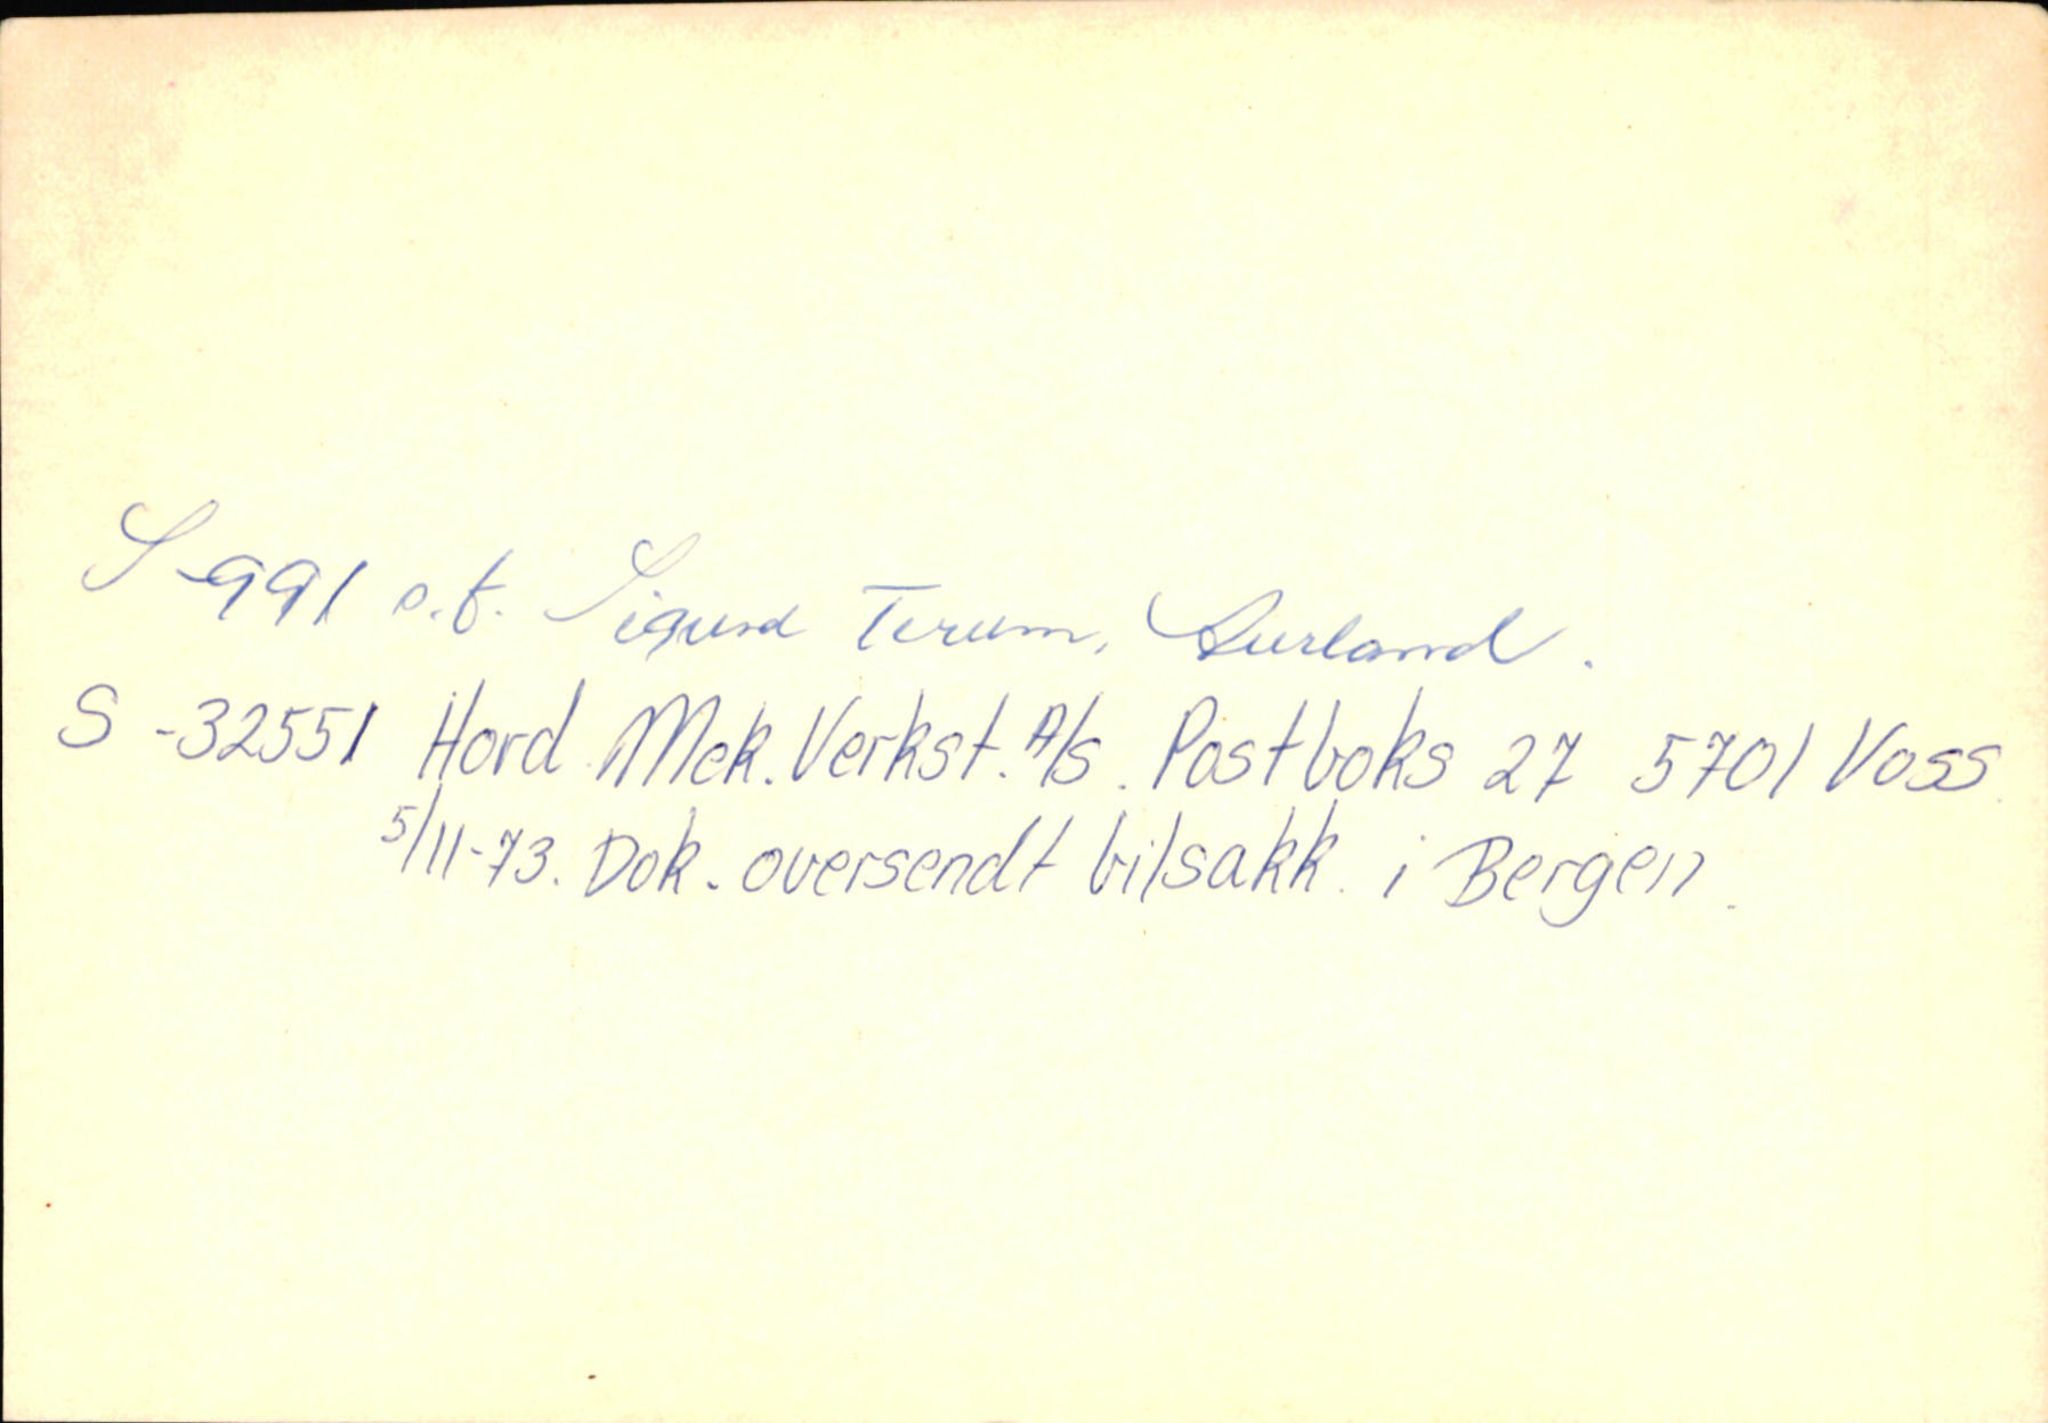 S-991 o.f. Sigurd Terum, Aurland.
S-32551 Hord Mek. Verkst. A/s. Postboks 27 5701 Voss.
5/11-73. Dok. oversendt bilsakk. i Bergen.